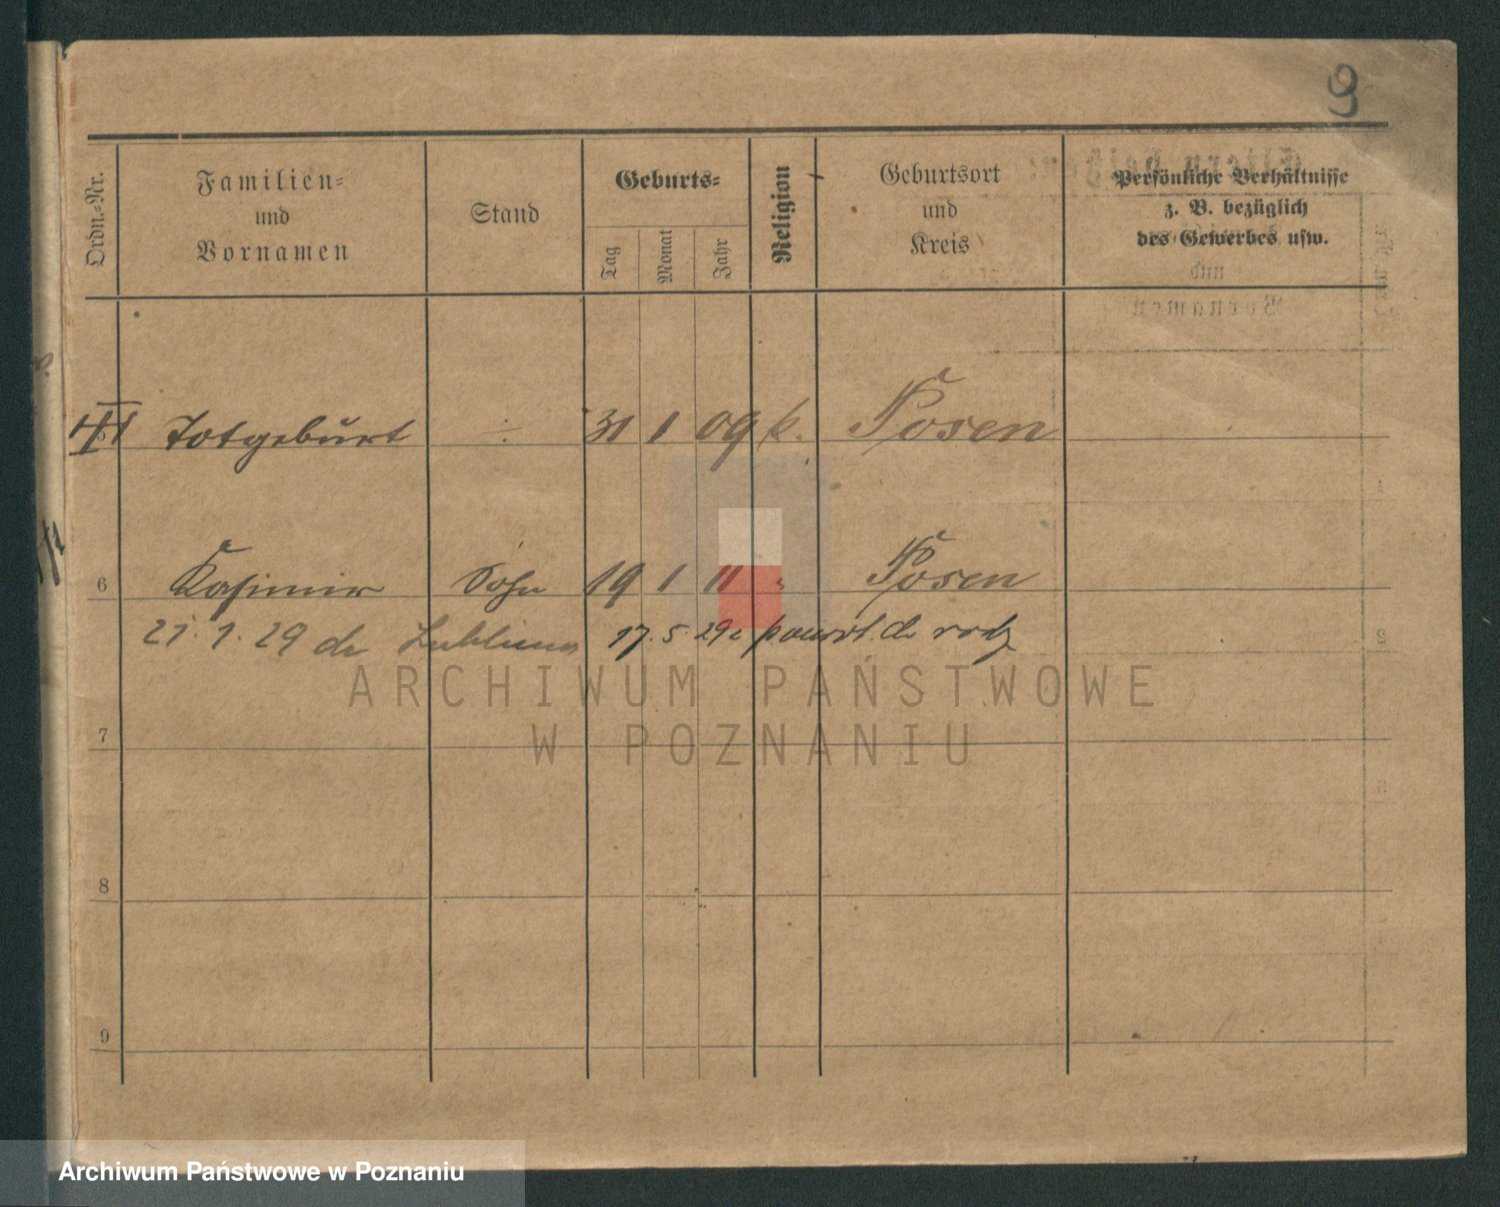 9
Ordn.-Nr.
Familien-
und
Vornamen
Stand
Geburts-
Tag
Monat
Jahr
Religion
Geburtsort
und
Kreis
Persönliche Verhältnisse
z. B. bezüglich
des Gewerbes usw.
Totgeburt 31 1 09 k. Posen
6 Kasimir Sohn 19 1 11 " Posen
21. 1. 29 do Lublina 17. 5 29 z powrt. do rodz
7
8
9
ARCHIWUM PAŃSTWOWE
W POZNANIU
Archiwum Państwowe w Poznaniu